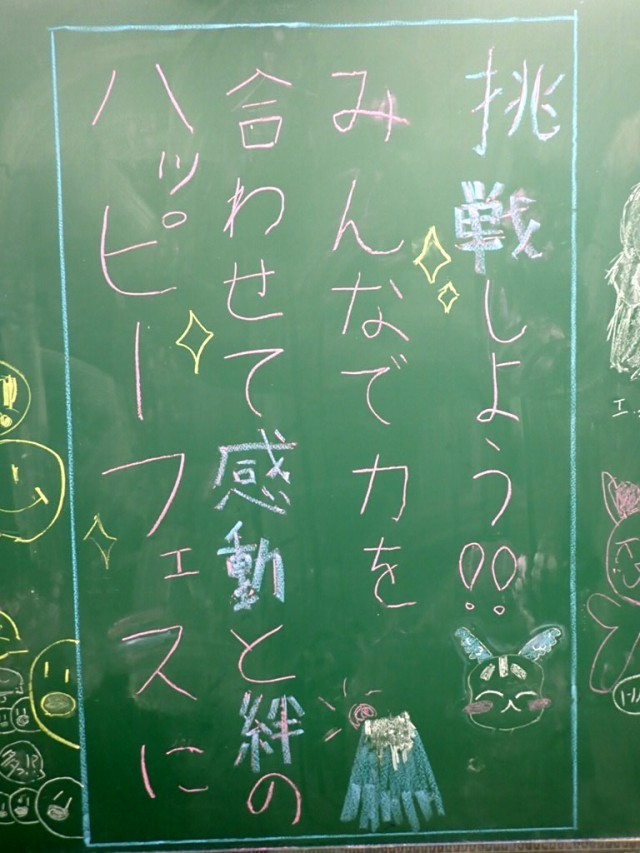 挑戦しよう!!
みんなで力を
合わせて感動と絆の
ハッピーフェスに